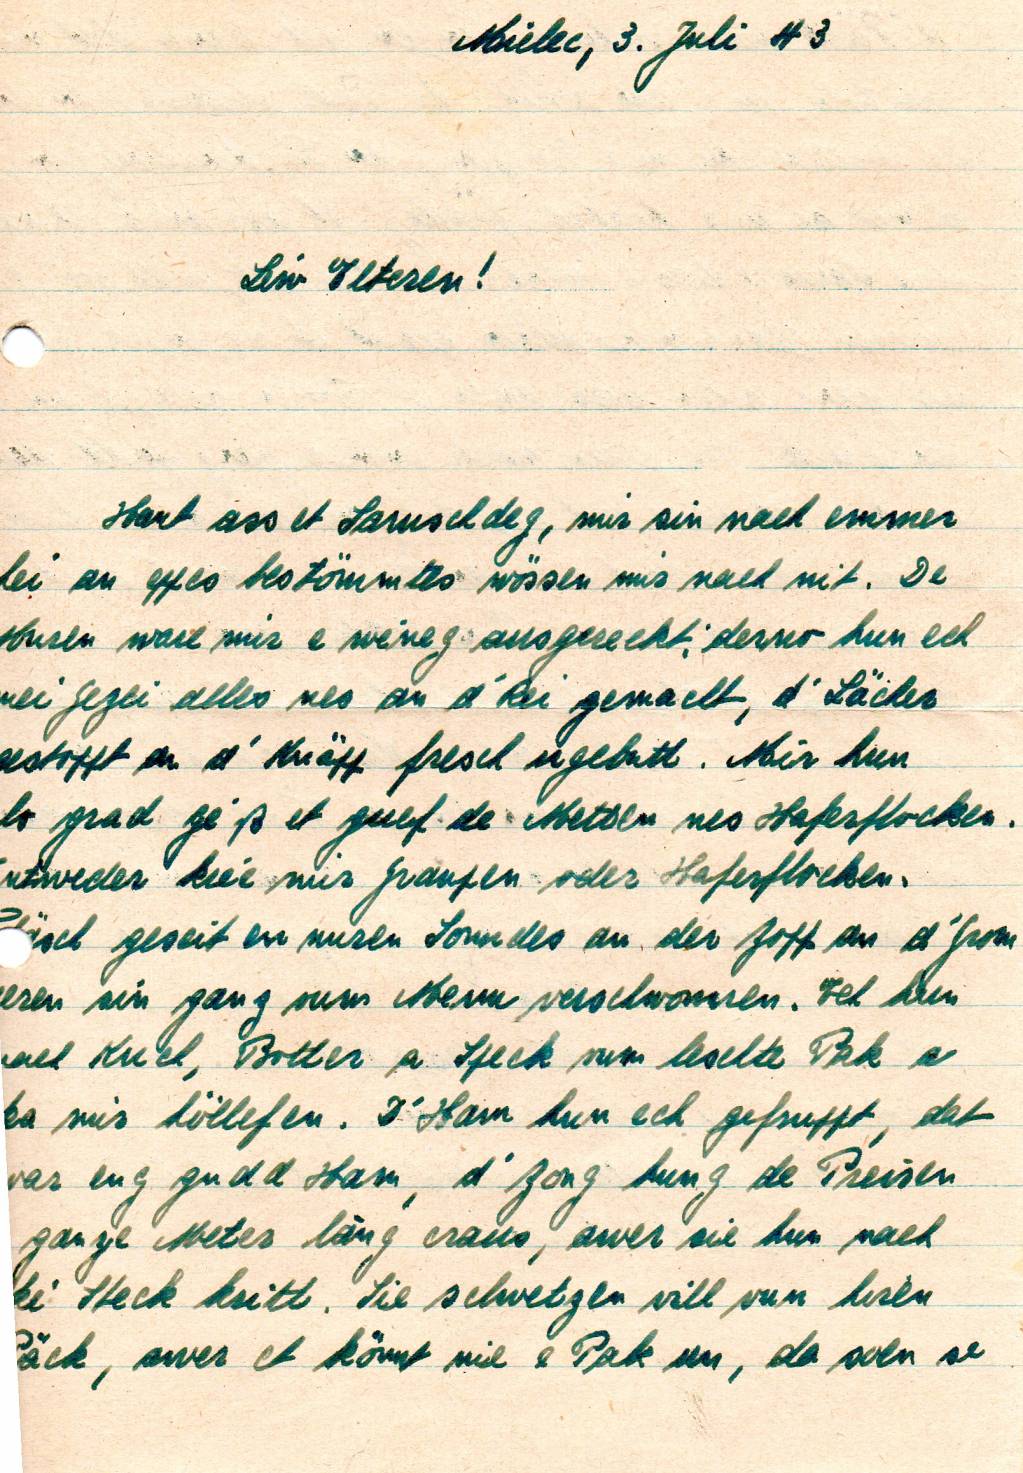 Mielec, 3. Juli 43
Leiw Elteren!
Haut ass et Samschdeg, mir sin nach emmer
hei an eppes bestömmtes wössen mir nach nit. De
ware mir e weineg ausgereckt; derno hun ech
mei Gezei alles nes an d' Rei gemacht, d' Läcker
gestopft an d' Knäpp fresch ugebutt. Mir hun
lo grad geiß et guef de Metten nes Haferflocken.
Entweder krie mir Graupen oder Haferflocken.
geseit en nuren Sonndes an der Zopp an d' Grom
peren sin ganz vum Menu verschwonnen. Ech hun
nach Kuch, Botter a Speck vum leschte Pak a
ka mir höllefen. D' Ham hun ech gefruppt, dat
war eng gudd Ham, d' Zong hung de Preisen
ganze Meter läng eraus, awer sie hun nach
kei Steck kritt. Sie schwetzen vill vun hiren
Päck, awer et könnt nie e Pak un, da soen se